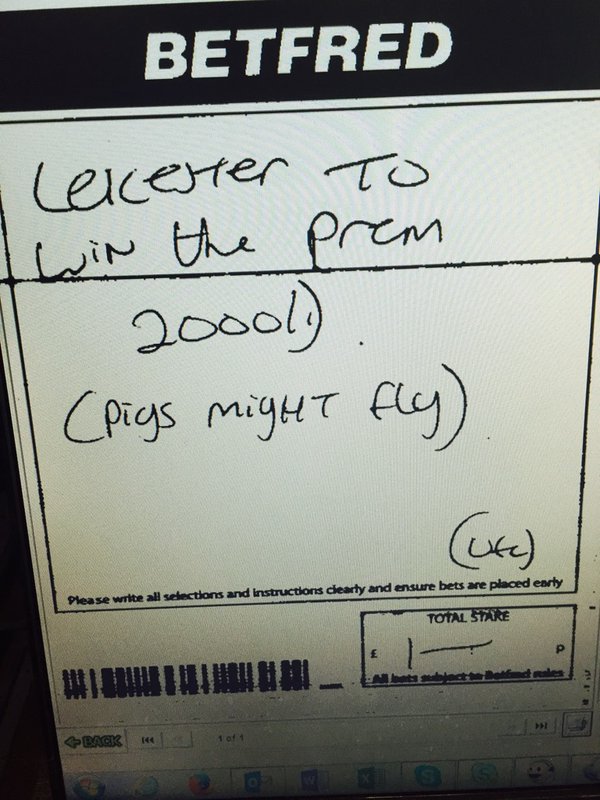 BETFRED
Leicester To
Win the Prem
2000/1
(pigs might fly)
(UFC)
Please write all selections and instructions clearly and ensure bets are placed early
TOTAL STAKE
£ 1— P
All bets subject to Betfred rules
BACK
1 of 1